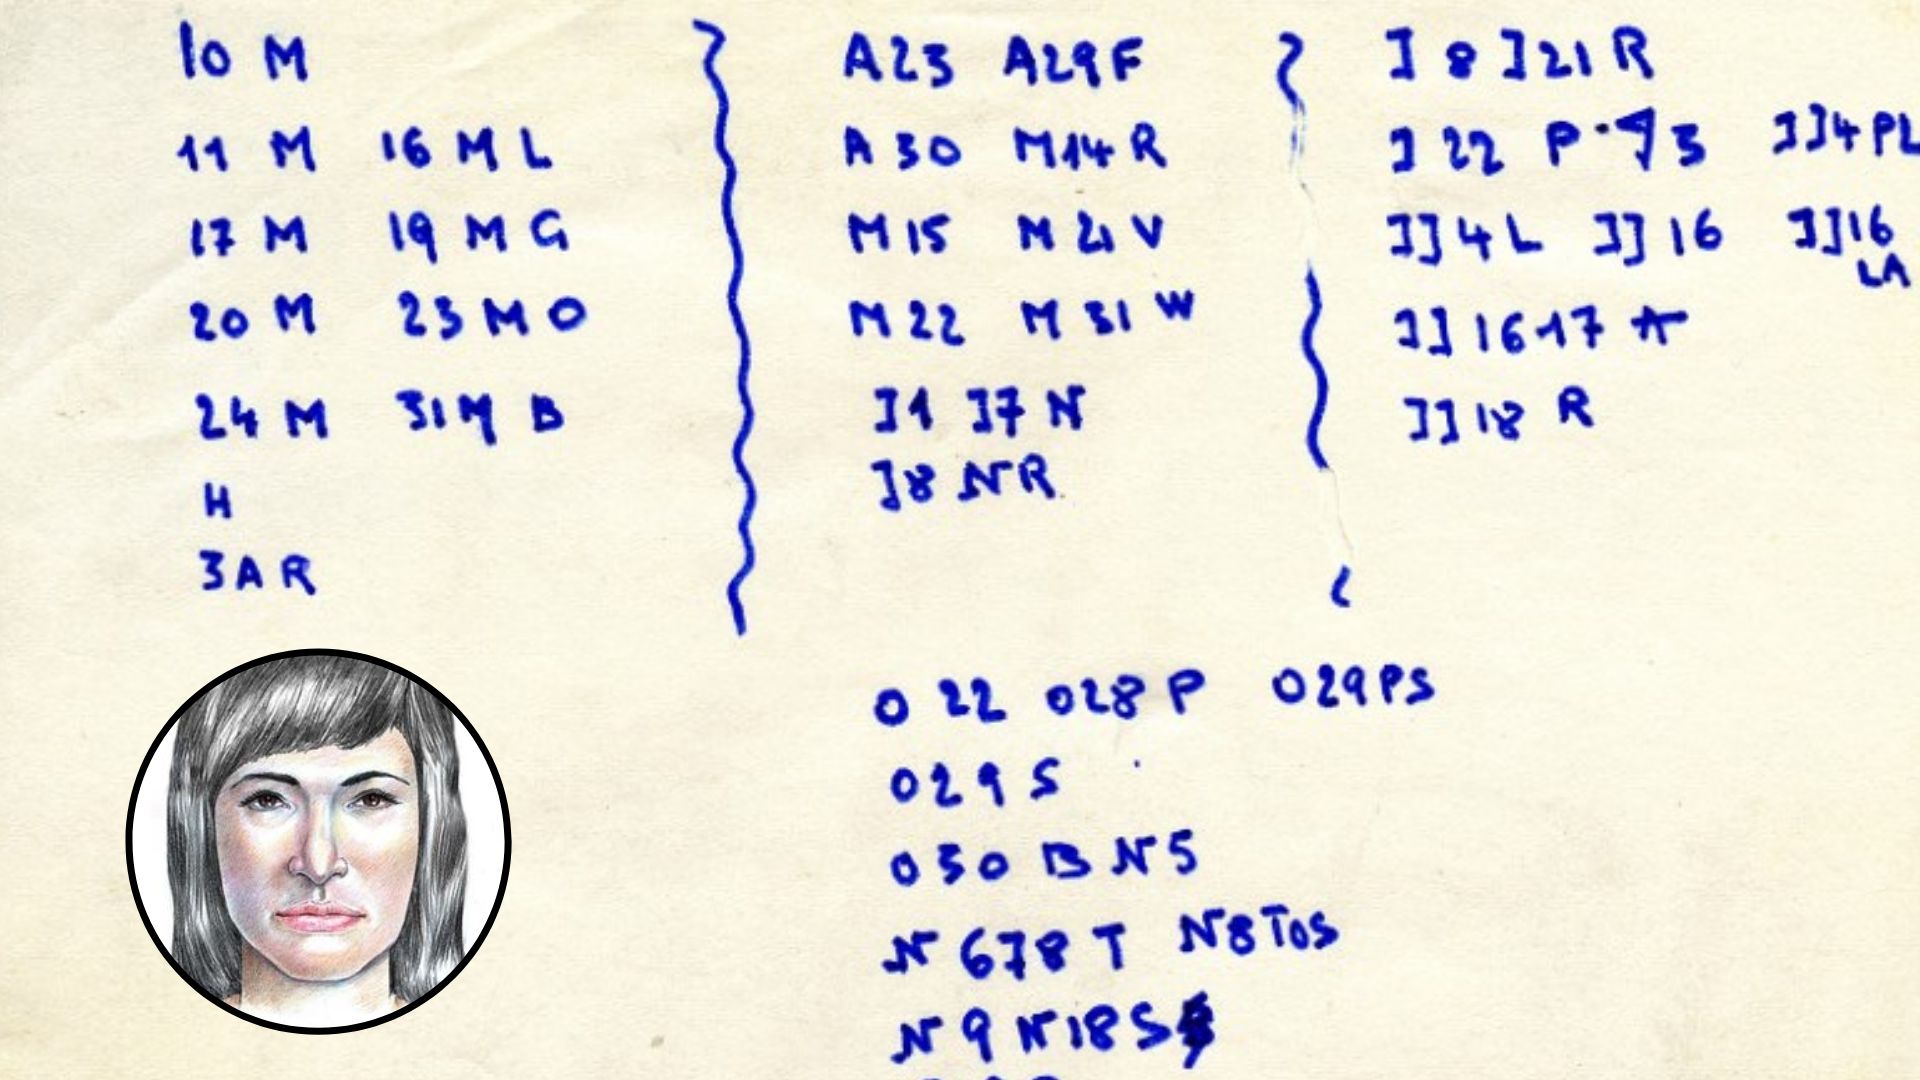 10 M
11 M 16 M L
17 M 19 M G
20 M 23 M O
24 M 31 M B
H
3 A R
A23 A29F
A 30 M14 R
M 15 M 21 V
M 22 M 31 W
J1 J7 N
J8 N R
J 8 J21 R
J 22 P 3 JJ4 PL
JJ4 L JJ 16 JJ16
LA
JJ 16 17 A
JJ 18 R
O 22 O28 P O29 PS
O29 S
O30 B N5
N 678 T N8 TOS
N 9 N18 S